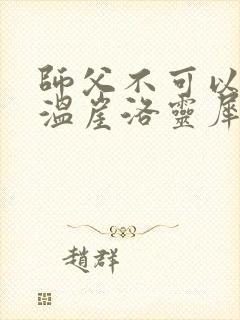 師父不可以
溫崖洛靈犀
趙群